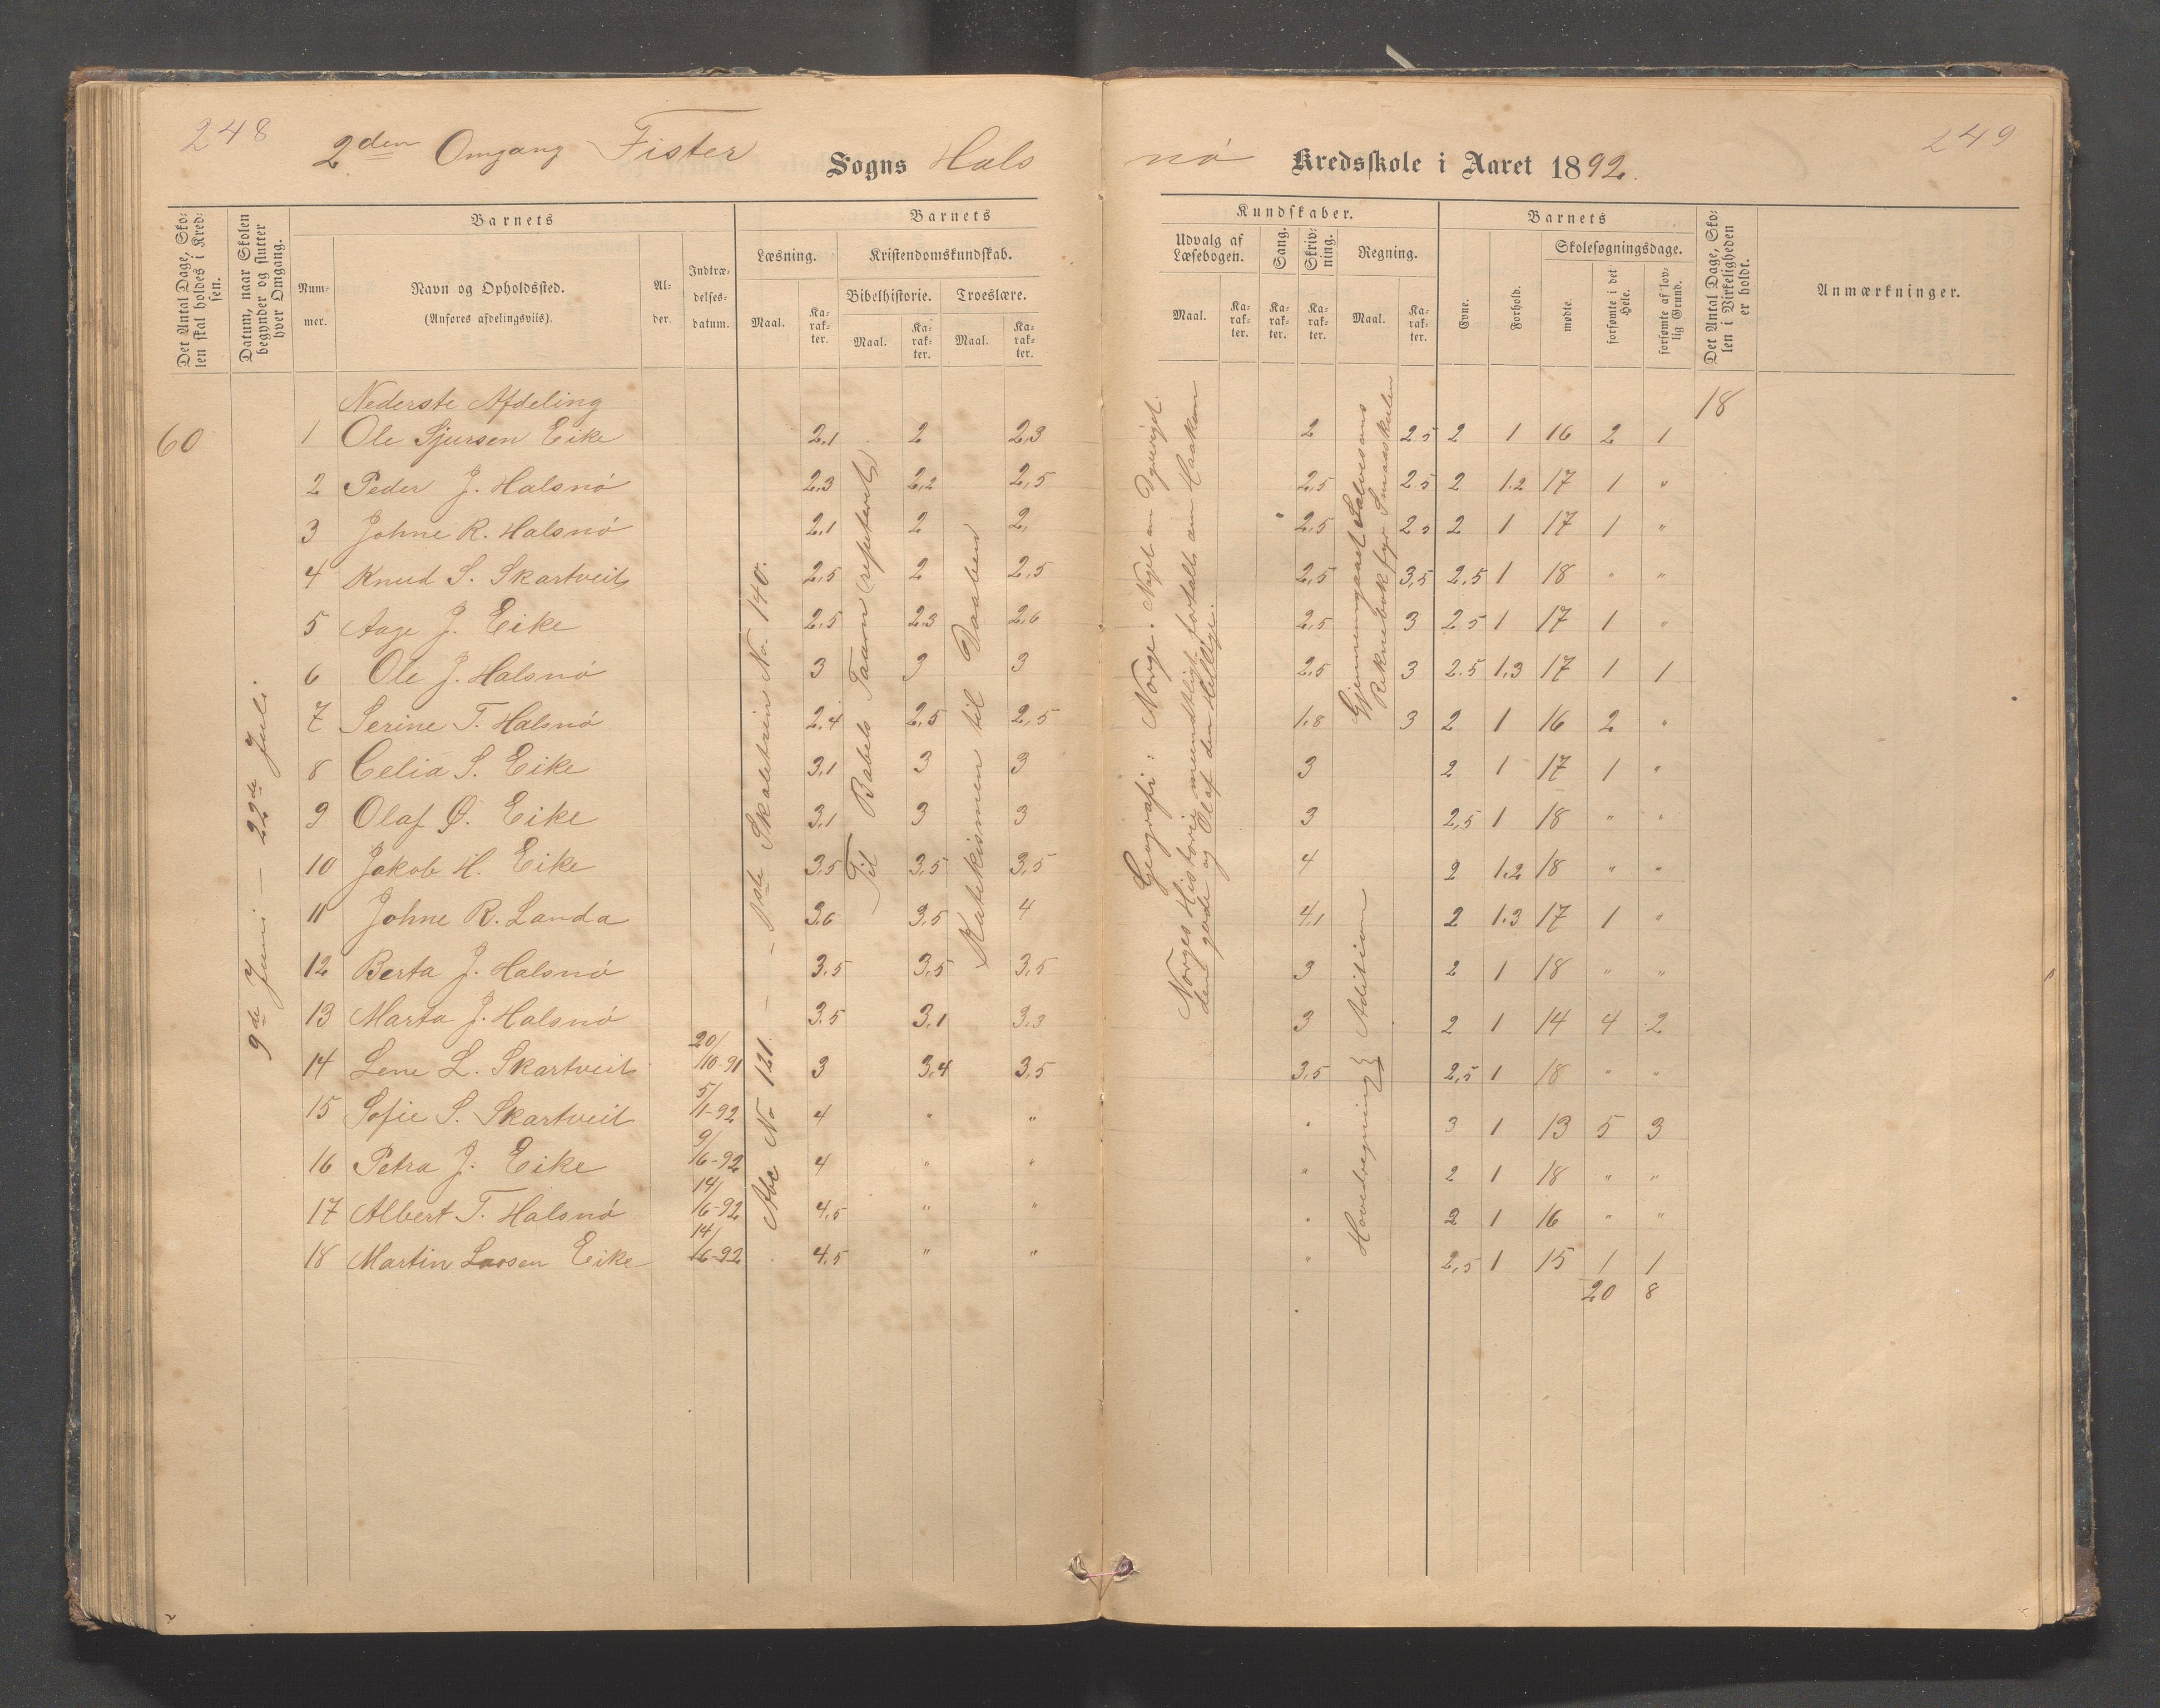 248
2den Omgang Fister Sogns Halsnø Kredsskole i Aaret 1892.
249
Det Antal Dage, Skolen skal holdes i Kredsen.
Datum, naar Skolen begynder og slutter hver Omgang.
Barnets
Nummer.
Navn og Opholdssted.
(Anføres afdelingsvis).
Alder.
Indtrædelsesdatum.
Barnets
Læsning.
Maal.
Karakter.
Kristendomskundskab.
Bibelhistorie.
Maal.
Karakter.
Troeslære.
Maal.
Karakter.
Kundskaber.
Udvalg af Læsebogen.
Maal.
Karakter.
Sang.
Karakter.
Skrivning.
Karakter.
Regning.
Maal.
Karakter.
Barnets
Evne.
Forhold.
Skolesøgningsdage.
mødte.
forsømte i det Hele.
forsømte af lovlig Grund.
Det Antal Dage, Skolen i Virkeligheden er holdt.
Anmærkninger.
Nederste Afdeling
18
60
9de Juni — 22de Juli
Abc No 121. — — 1ste Skoletrin No. 140.
Til Babels Taarn (repetert)
Katekismen til Daaben
Geografi: Norge. Noget om
Norges Historie mundtligt fortalt om Haakon
den gode og Olaf den Hellige.
Hovedregning } Adition
1 Ole Sjursen Eike 2,1 2 2,3 2 2 5 2 1 16 2 1
2 Peder J. Halsnø 2,3 2,2 2,5 2,5 2 5 2 1.2 17 1 "
3 Johne R. Halsnø 2,1 2 2, 2,5 2 5 2 1 17 1 "
4 Knud S. Skartveit 2,5 2 2,5 2,5 3,5 2,5 1 18 " "
5 Aage J. Eike 2,5 2,3 2,6 2,5 3 2 5 1 17 1 "
6 Ole J. Halsnø 3 3 3 2,5 3 2.5 1.3 17 1 1
7 Serine T. Halsnø 2,4 2,5 2,5 1.8 3 2 1 16 2 "
8 Celia S. Eike 3,1 3 3 3 2 1 17 1 "
9 Olaf Ø. Eike 3,1 3 3 3 2,5 1 18 " "
10 Jakob H. Eike 3,5 3,5 3,5 4 2 1.2 18 " "
11 Johne R. Landa 3,6 3,5 4 4,1 2 1.3 17 1 "
12 Berta J. Halsnø 3,5 3,5 3,5 3 2 1 18 " "
13 Marta J. Halsnø 3.5 3,1 3,3 3 2 1 14 4 2
14 Lene L. Skartveit 20/10-91 3 3,4 3,5 3,5 2,5 1 18 " "
15 Sofie S. Skartveit 5/1-92 4 " " " 3 1 13 5 3
16 Petra J. Eike 9/6-92 4 " " " 2 1 18 " "
17 Albert T. Halsnø 14/6-92 4,5 " " " 2 1 16 " "
18 Martin Larsen Eike 14/6-92 4,5 " " " 2,5 1 15 1 1
20 8